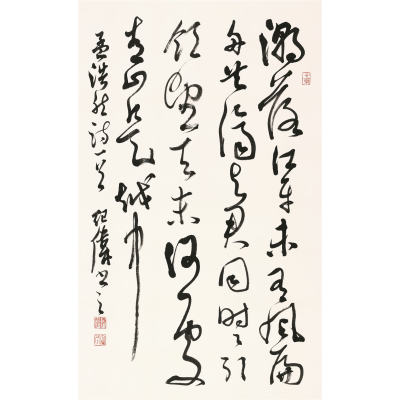 潮落江平未有風扁
舟共济与君同时々引
领望天末何處
青山是越中
孟浩然诗一首 书之